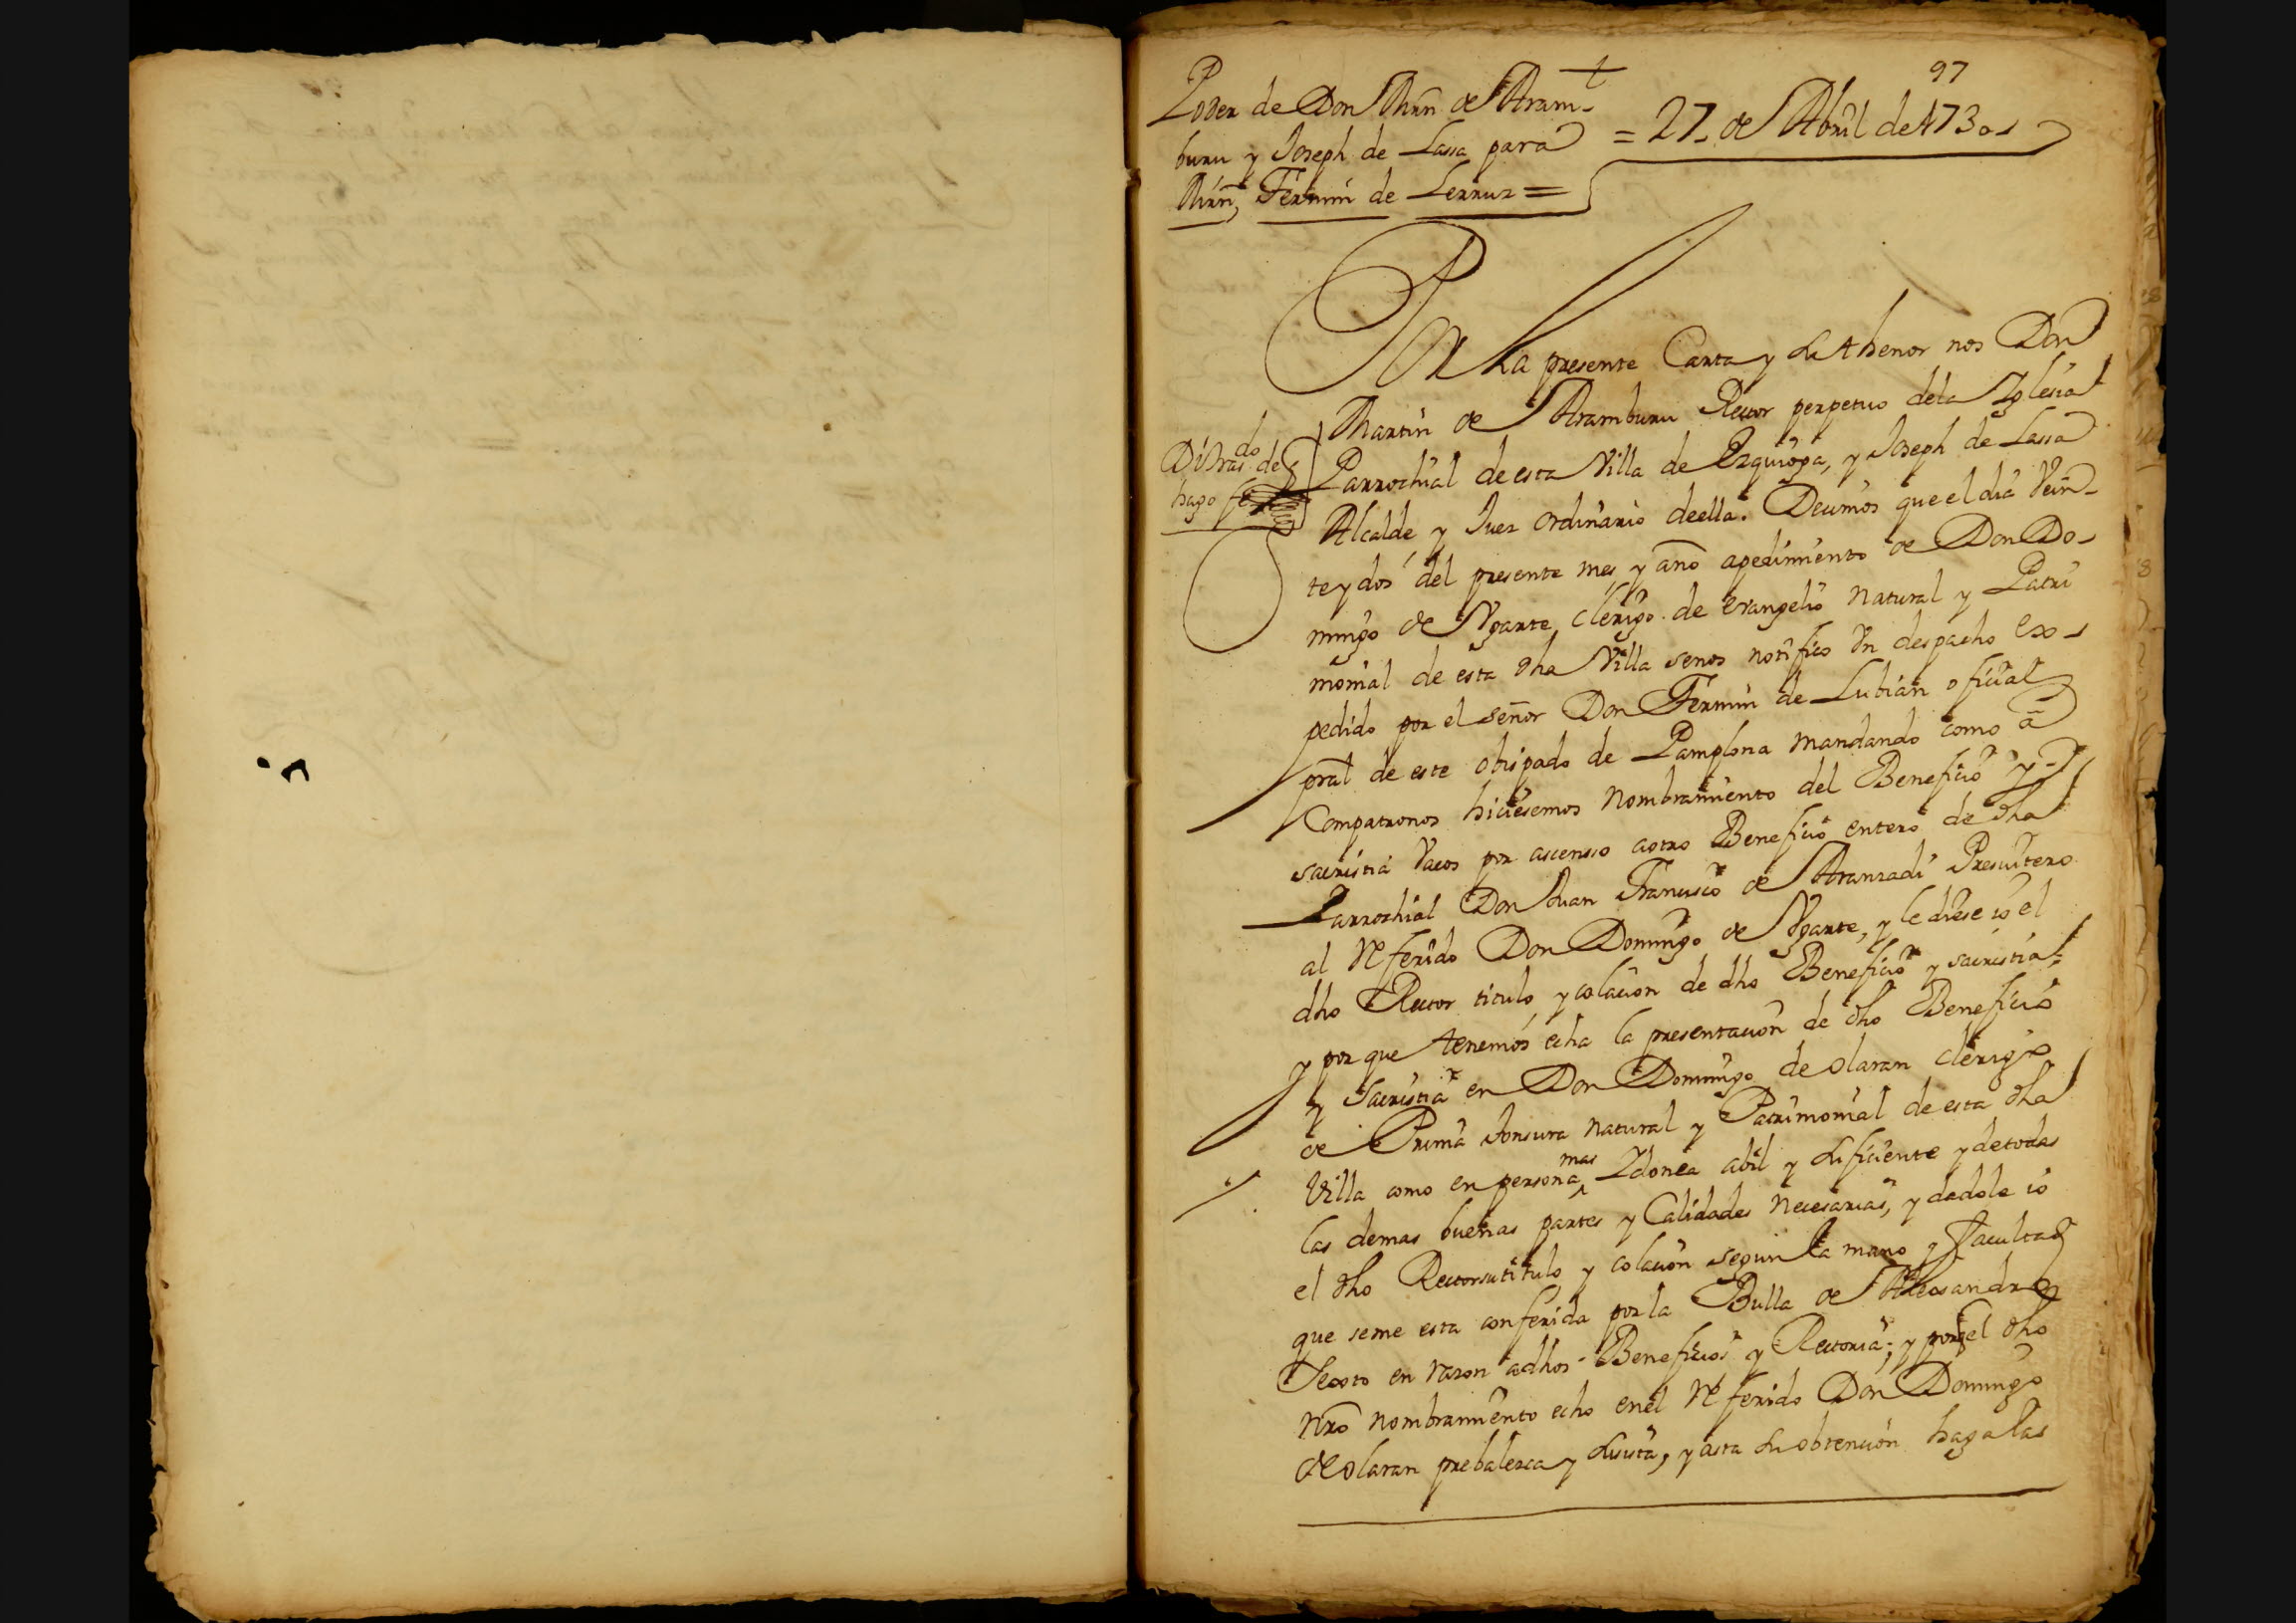 97
Poder de Don Mrñ de Aram-
buru y Joseph de Lassa para
Mrñ, Fermin de Lerruz =
= 27,, de Abril de 1730,,
Por la presente Carta y su thenor nos Don
Martin de Aramburu Rector perpetuo dela Yglesia
Parrochial de esta Villa de Ezquioga, y Joseph de Lassa
Alcalde y Juez ordinario deella. Decimos que el dia Vein-
te y dos del presente mes y año apedimiento de Don Do-
mingo de Ygarte clerigo de evangelio natural y Patri
monial de esta dha Villa senos notifico Un despacho ex-
pedido por el señor Don Fermin de Lubian oficial
pral de este obispado de Pamplona mandando como a
Compatronos hiciesemos nombramiento del Beneficio y
sacristia Vacos por ascenso aotro Beneficio entero de dha
Parrochial Don Juan Francisco de Aranzadi Presuitero
al Referido Don Domingo de Ygarte, y le diese io el
dho Rector titulo y colacion de dho Beneficio y sacristia:
y por que tenemos echa la presentacion de dho Beneficio
y Sacristia en Don Domingo de olaran clerigo
de Prima tonsura natural y Patrimonial de esta dha
Villa como en persona mas Idonea abil y suficiente y detodas
las demas buenas partes y Calidades necesarias, y dadole io
el dho Rector su titulo y colacion segun la mano y facultad
que seme esta conferida por la Bulla de Alexandro
Sexto en razon adhos Beneficios y Rectoria; y porqe el dho
nro nombramiento echo enel Referido Don Domingo
de olaran prebalezca y susista, y asta su obtencion haga las
do
hago fe